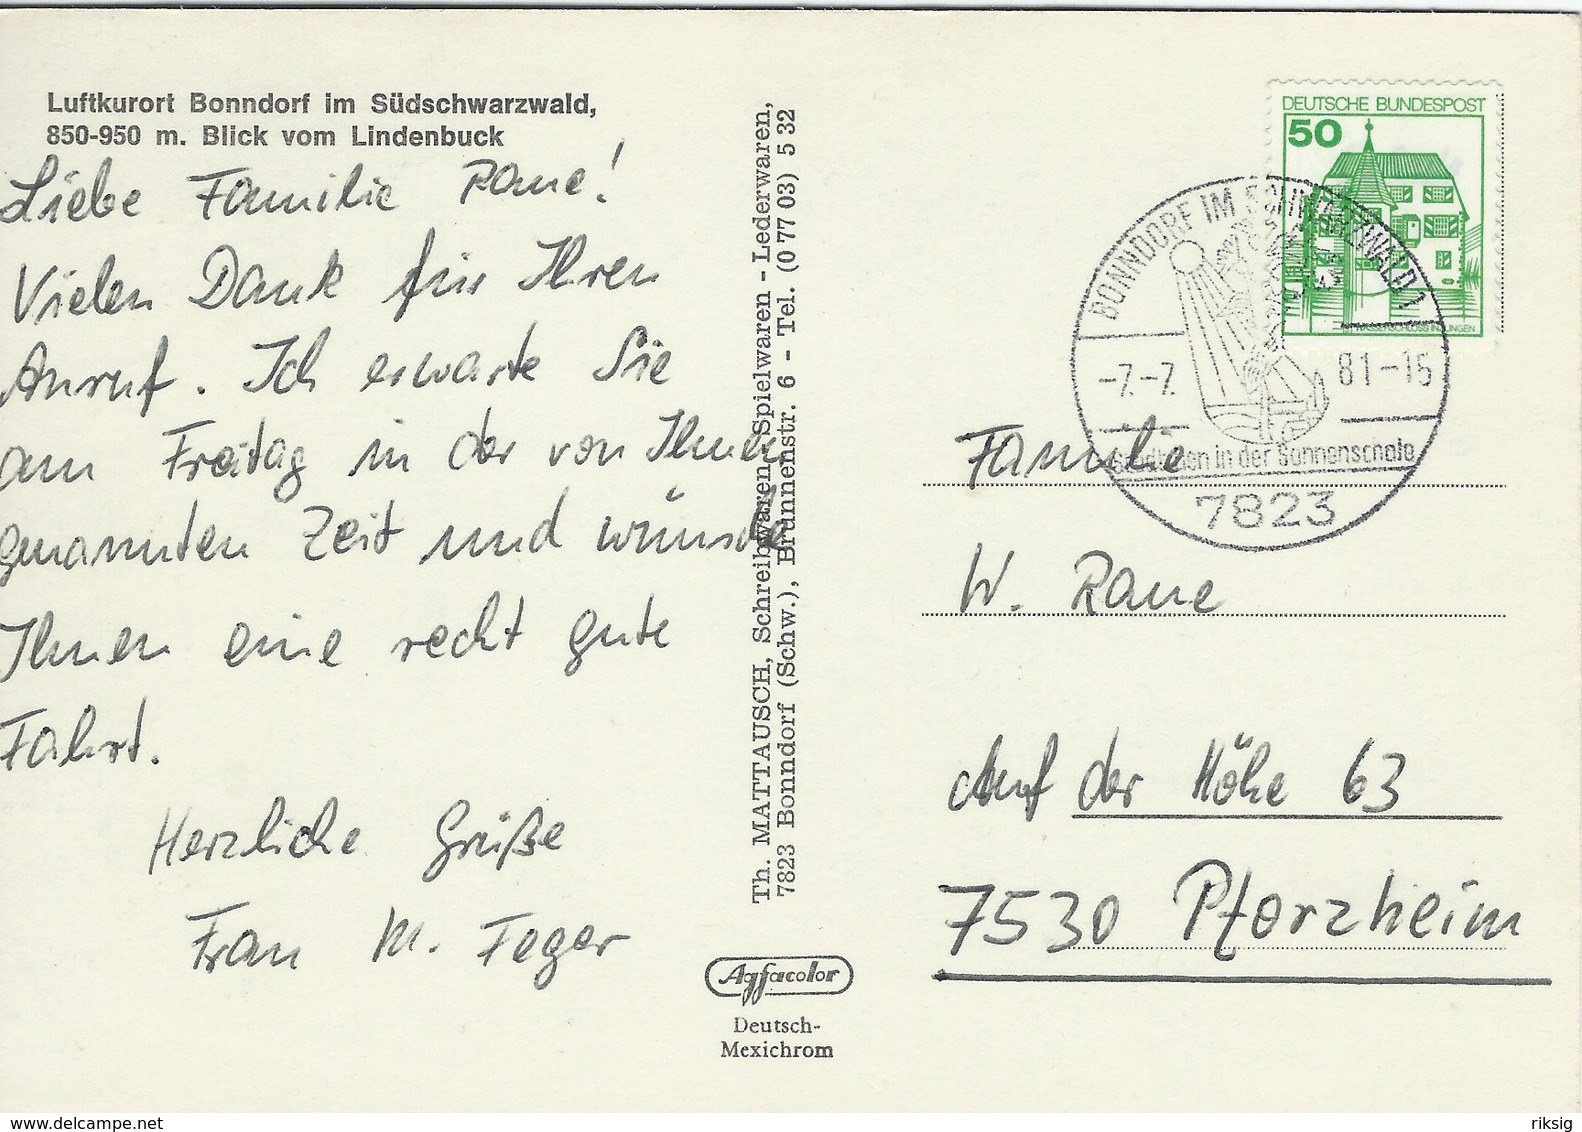 Luftkurort Bonndorf im Südschwarzwald,
850-950 m. Blick vom Lindenbuck
Liebe Familie Raue!
Vielen Dank für Ihren
Anruf. Ich erwarte Sie
am Freitag in der von Ihnen
genannten Zeit und wünsche
Ihnen eine recht gute
Fahrt.
Herzliche Grüße
Frau M. Feger
Th. MATTAUSCH, Schreibwaren - Spielwaren - Lederwaren,
7823 Bonndorf (Schw.), Brunnenstr. 6 - Tel. (0 77 03) 5 32
Agfacolor
Deutsch-
Mexichrom
DEUTSCHE BUNDESPOST
50
WASSERSCHLOSS INZLINGEN
BONNDORF IM SCHWARZWALD 1
-7.-7. 81-15
Städtchen in der Sonnenschale
7823
Familie
W. Raue
Auf der Höhe 63
7530 Pforzheim
delcampe.net
riksig